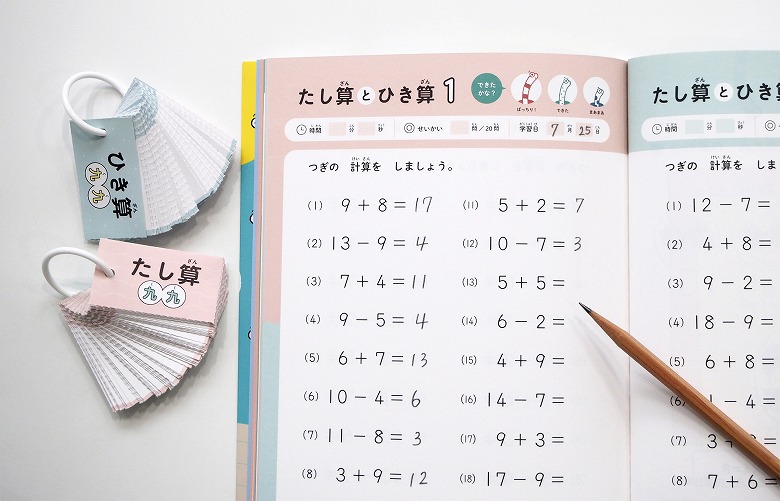 ひき算
九九
たし算
九九
たし算とひき算 1
ざん
ざん
できた
かな?
ばっちり!
できた
まあまあ
時間 分 秒
せいかい 問/20問
学習日 7月 25日
つぎの 計算を しましょう。
けい さん
(1) 9 + 8 = 17
(2) 13 − 9 = 4
(3) 7 + 4 = 11
(4) 9 − 5 = 4
(5) 6 + 7 = 13
(6) 10 − 4 = 6
(7) 11 − 8 = 3
(8) 3 + 9 = 12
(11) 5 + 2 = 7
(12) 10 − 7 = 3
(13) 5 + 5 =
(14) 6 − 2 =
(15) 4 + 9 =
(16) 14 − 7 =
(17) 9 + 3 =
(18) 17 − 9 =
たし算とひき
ざん
時間 分 秒
つぎの 計算を しま
けい さん
(1) 12 − 7 =
(2) 4 + 8 =
(3) 9 − 2 =
(4) 18 − 9 =
(5) 6 + 8 =
(6) − 4 =
(7) 3
(8) 7 + 6 =